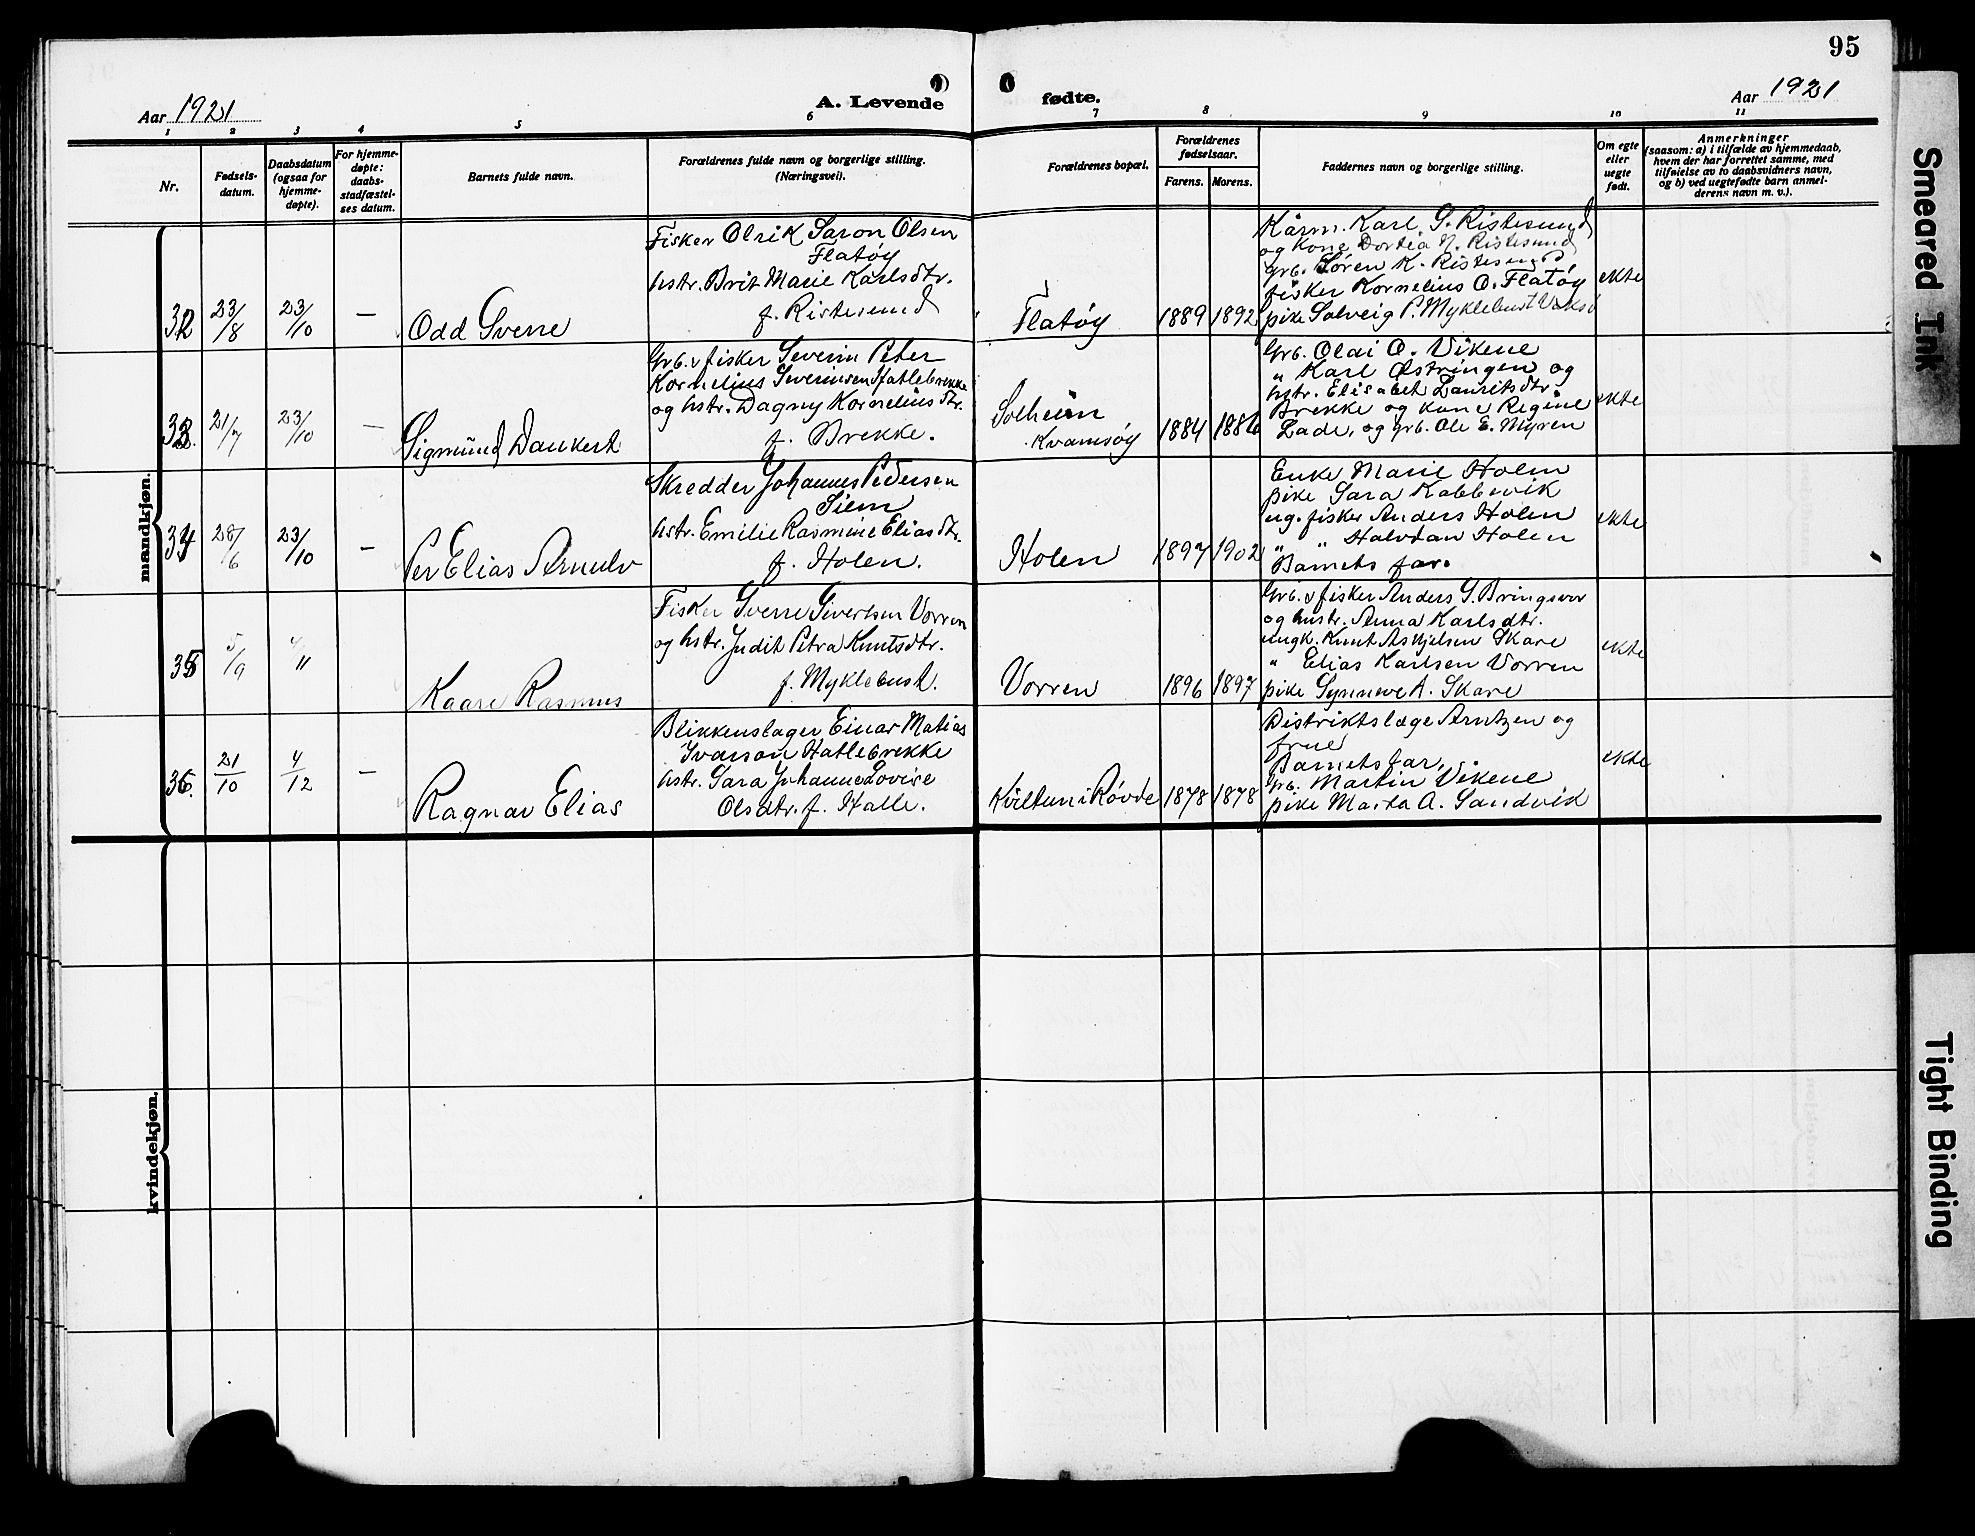 95
Aar 1921
A. Levende
fødte.
Aar 1921
1 2 3 4 5 6 7 8 9 10 11
Nr.
Fødsels-
datum.
Daabsdatum
(ogsaa for
hjemme-
døpte).
For hjemme-
døpte:
daabs-
stadfæstel-
ses datum.
Barnets fulde navn.
Forældrenes fulde navn og borgerlige stilling.
(Næringsvei).
Forældrenes bopæl.
Forældrenes
fødselsaar.
Farens. Morens.
Faddernes navn og borgerlige stilling.
Om egte
eller
uegte
født.
Anmerkninger
(saasom: a) i tilfælde av hjemmedaab,
hvem der har forrettet samme, med
tilføielse av to daabsvidners navn,
og b) ved uegtefødte barn anmel-
derens navn m. v.).
mandkjøn.
32
23/8
23/10
—
Odd Sverre
Fisker Olrik Saron Olsen
Flatøy
hstr. Brit Marie Karlsdtr.
f. Ristesund
Flatøy
1889 1892
Kårm. Karl S. Ristesund
og kone Dortea N. Ristesund
grb. Søren K. Ristesund
fisker Kornelius O. Flatøy
pike Solveig P. Myklebust
ekte
33.
21/7
23/10
—
Sigmund Dankert
Grb. & fisker Severin Peter
Kornelius Severinsen Hatlebrekke
og hstr. Dagny Kornelius dtr.
f. Brekke.
Solheim
Kvamsøy
1884 1886
Grb. Olai O. Vikene
" Karl Østringen og
hstr. Elisabet Lauritsdtr.
Brekke og kone Regine
Lade, og grb. Ole E. Myren
ekte
34
28/6
23/10
—
Per Elias Arnulv
Skredder Johannes Pedersen
Siem
hstr. Emilie Rasmine Eliasdtr.
f. Holen.
Holen
1897 1902
Enke Marie Holen
pike Sara Kobbevik
ug. fisker Anders Holen
" " Halvdan Holen
Barnets far.
ekte
35
5/9
4/11
Kaare Rasmus
Fisker Sverre Sivertsen Vorren
og hstr. Judit Petra Knutsdtr.
f. Myklebust.
Vorren
1896 1897
Grb. & fisker Anders S. Bringsvor
og hustr. Anna Karlsdtr.
ungk. Knut Askjelsen Skare
" Elias Karlsen Vorren
pike Synneve A. Skare
ekte
36.
21/10
4/12
—
Ragnar Elias
Blikkenslager Einar Matias
Ivarson Hatlebrekke
hstr. Sara Johanne Lovise
Olsdtr. f. Halle.
Kviltun i Røvde
1878 1878
Distriktslæge Arntzen og
frue
Barnets far,
Grb. Martin Vikene
pike Marta A. Sandvik
ekte
kvindekjøn.
Smeared Ink
Tight Binding